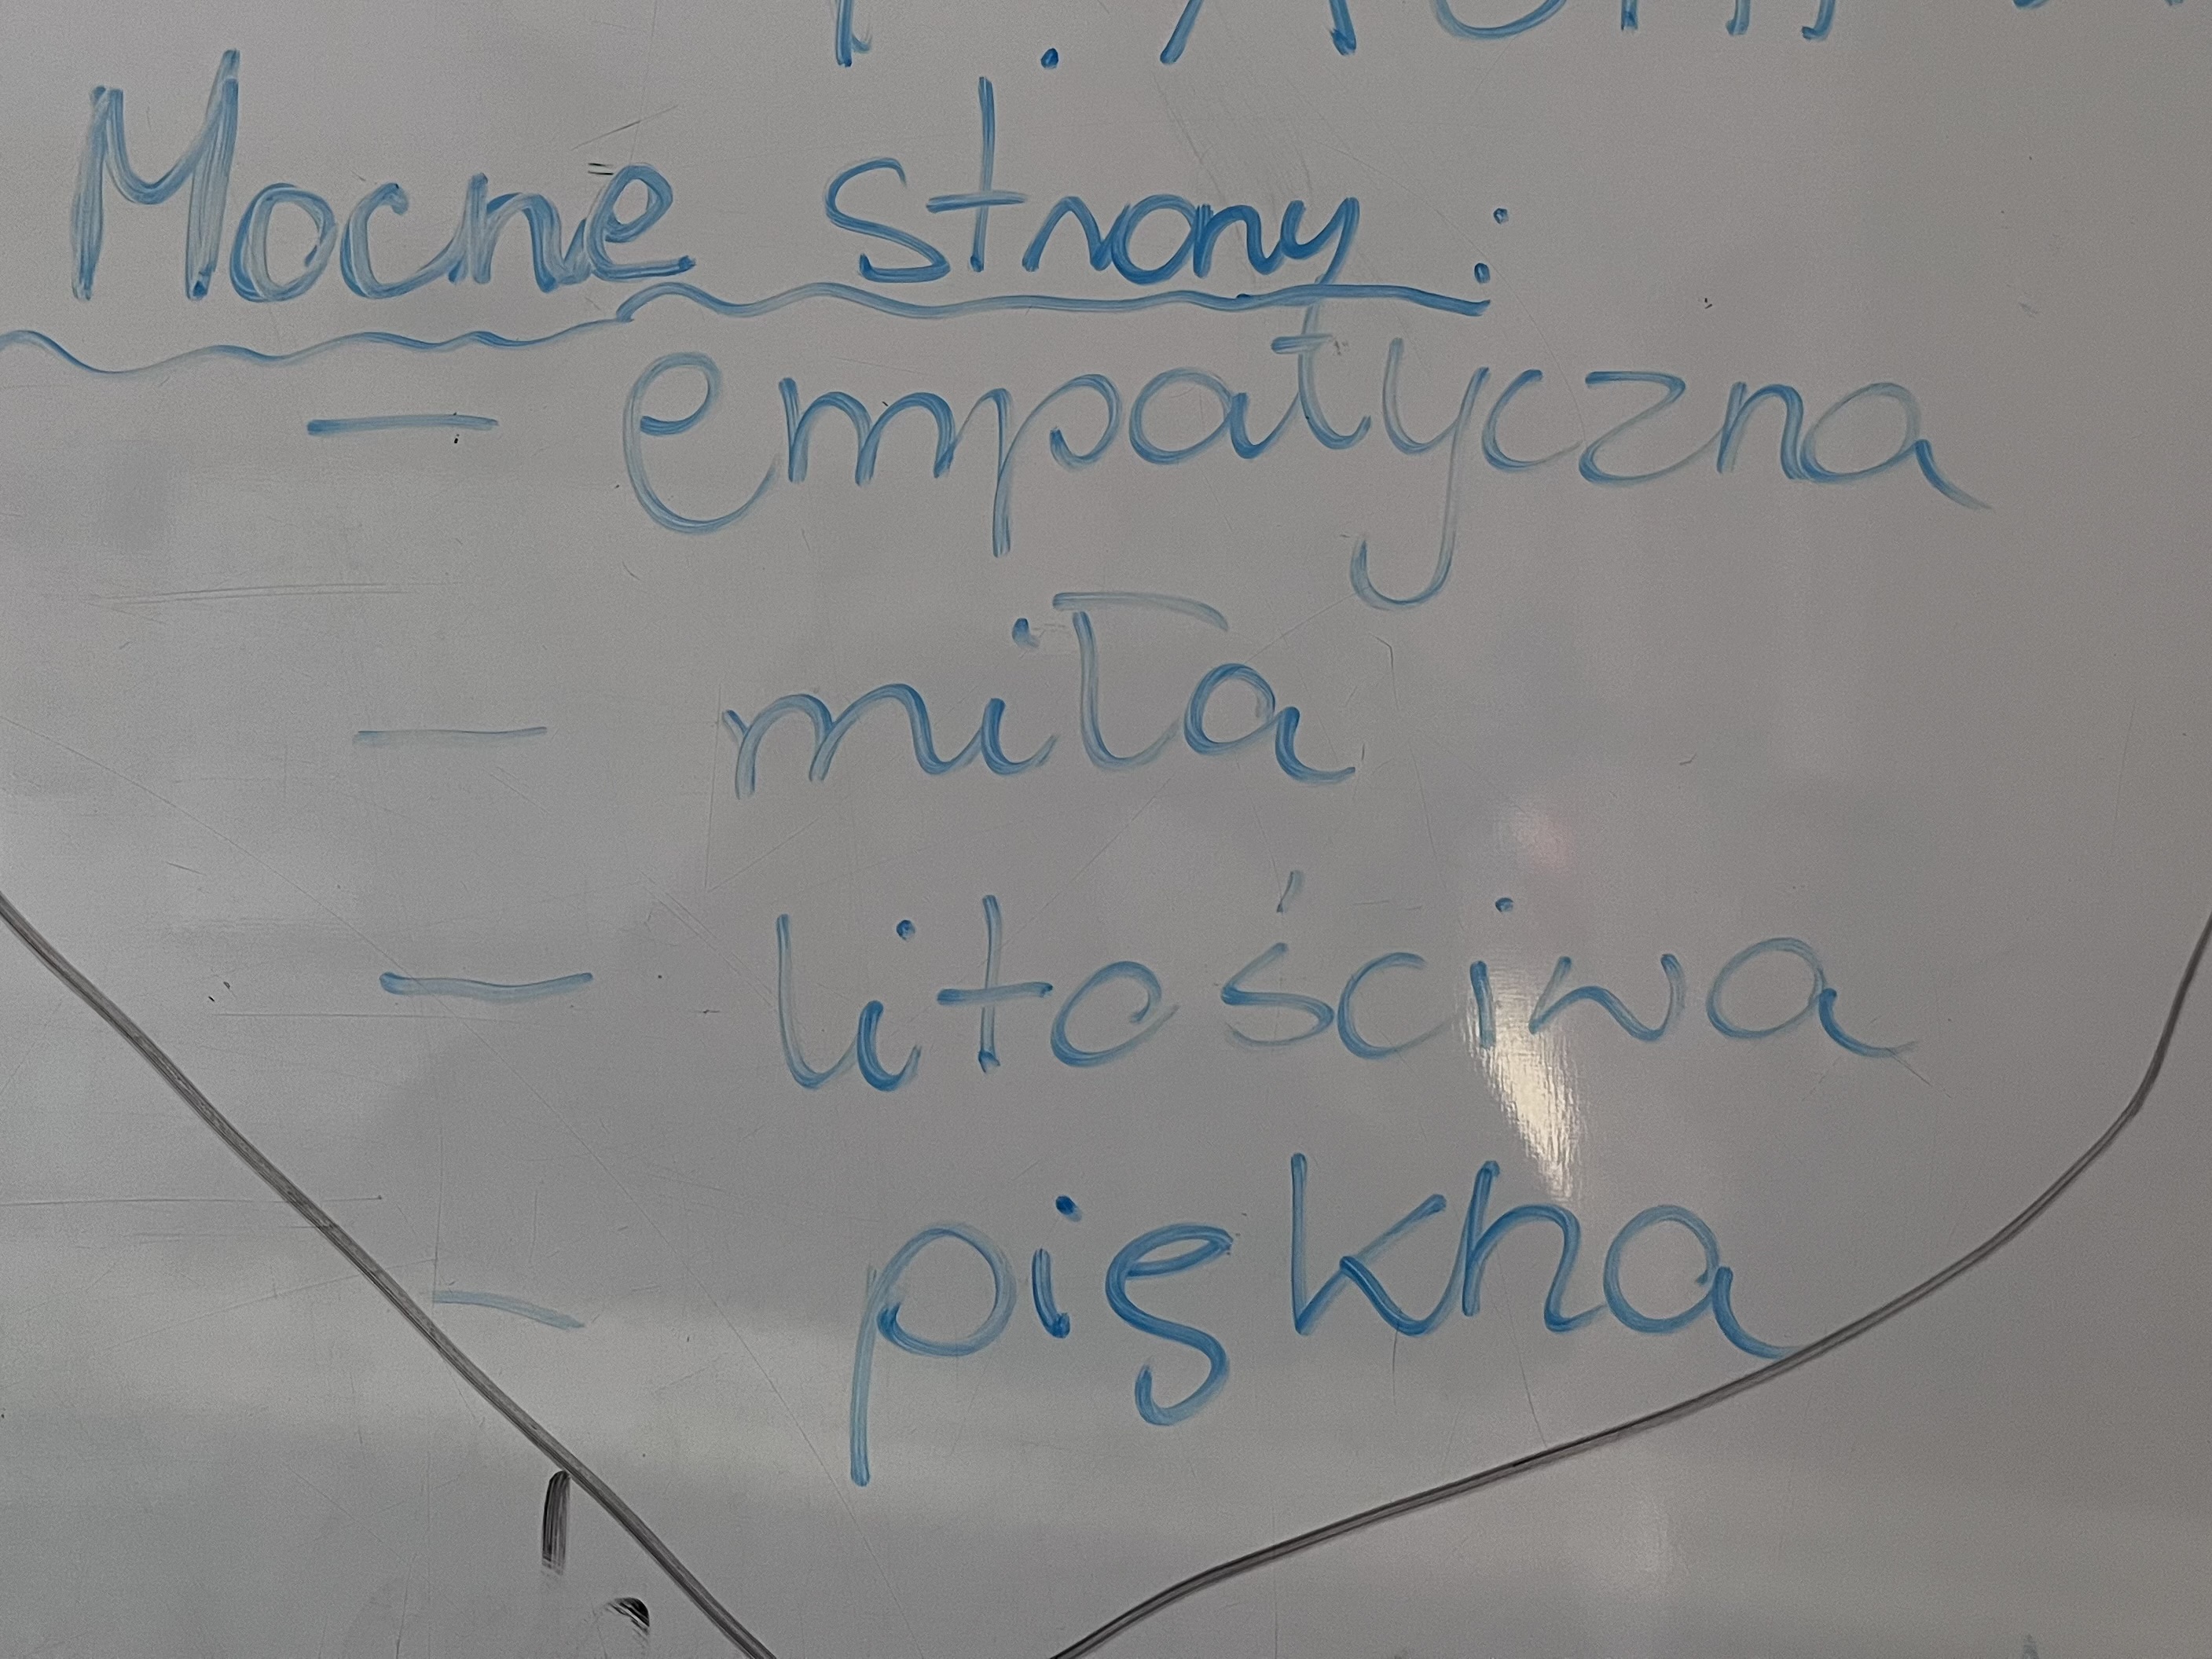 Mocne strony:
- empatyczna
- miła
- litościwa
- piękna